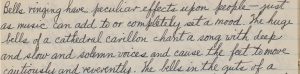 Bells ringing have peculiar effects upon people - just
as music can add to or completely set a mood. The huge
bells of a cathedral carillon chant a song with deep
and slow and solemn voices and cause the feet to move
cautiously and reverently. The bells in the guts of a